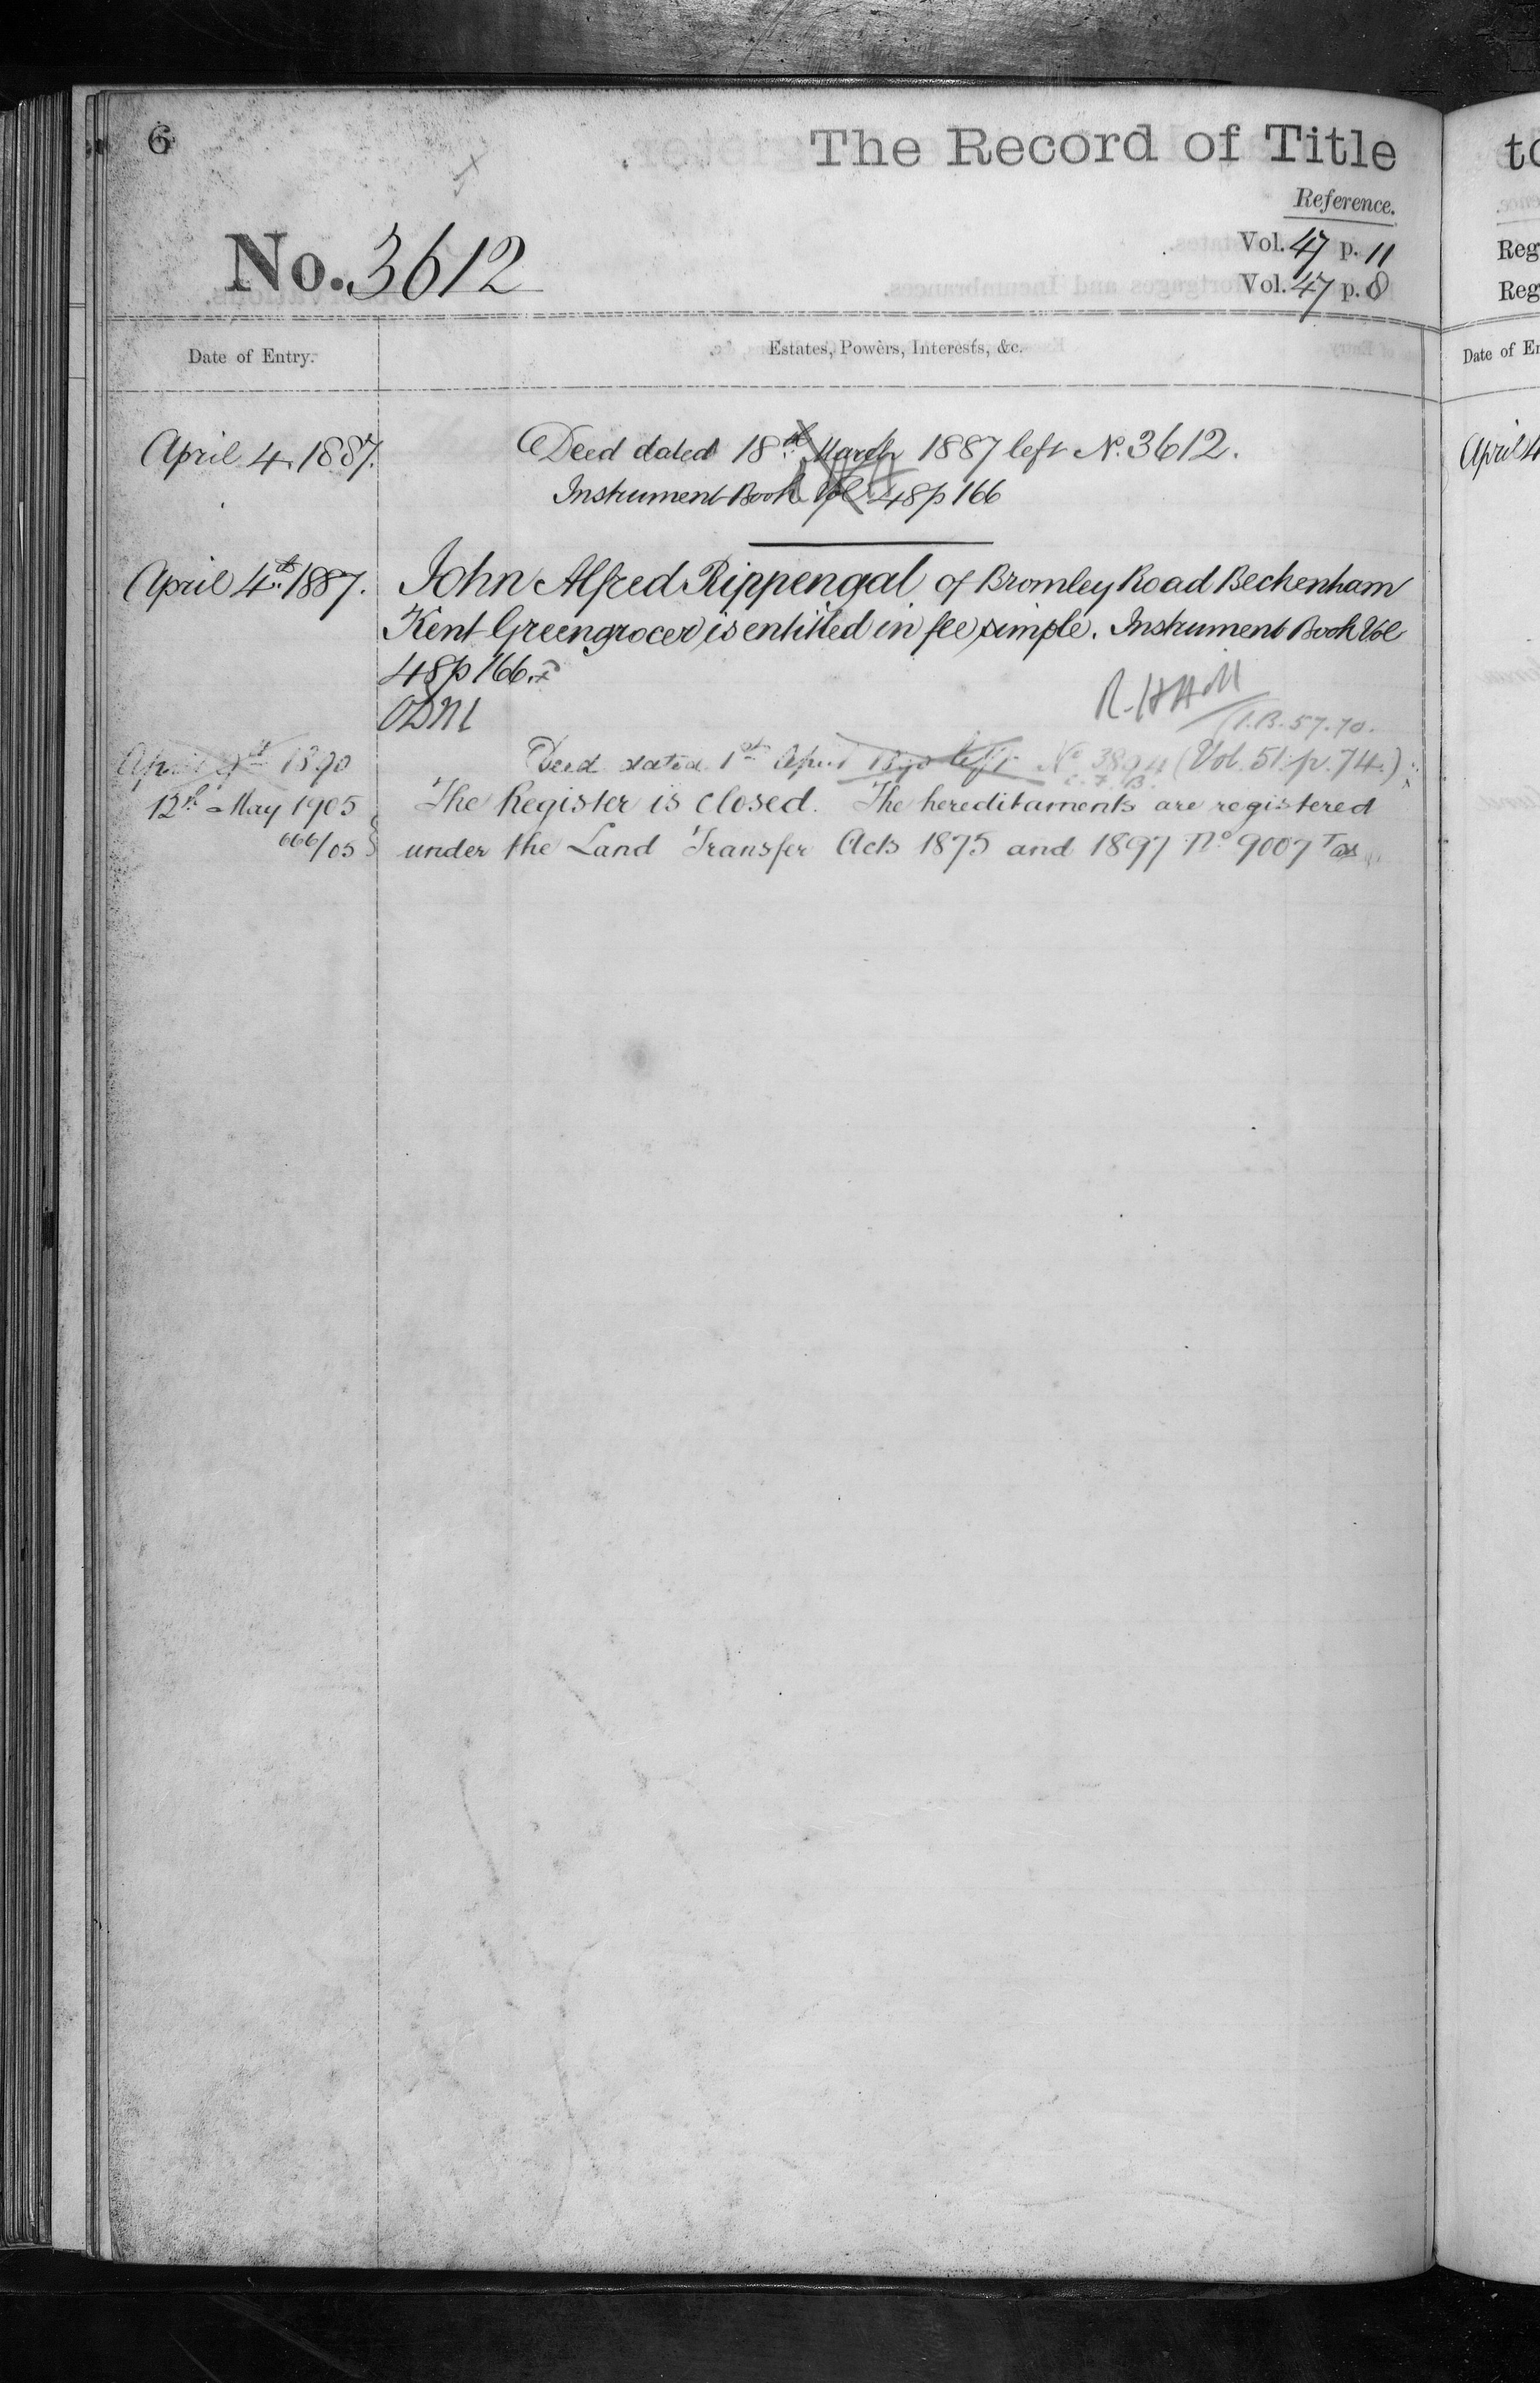 6
The Record of Title
Reference.
No. 3612
Vol. 47 p. 11
Vol. 47 p. 8
Date of Entry.
Estates, Powers, Interests, &c.
April 4. 1887.
Deed dated 18th March 1887 left No. 3612.
Instrument Book Vol 48 p 166
April 4th 1887.
John Alfred Rippengal of Bromley Road Beckenham
Kent Greengrocer is entitled in fee simple. Instrument Book Vol
48 p 166.
I.B. 57. 70.
April 1890
Deed dated 1st April 1890 left No 3894 (Vol. 51. p. 74.)
12th May 1905
The Register is closed. The hereditaments are registered
666/05
under the Land Transfer Acts 1875 and 1897 No 9007
to
Reg
Reg
Date of En
April 4